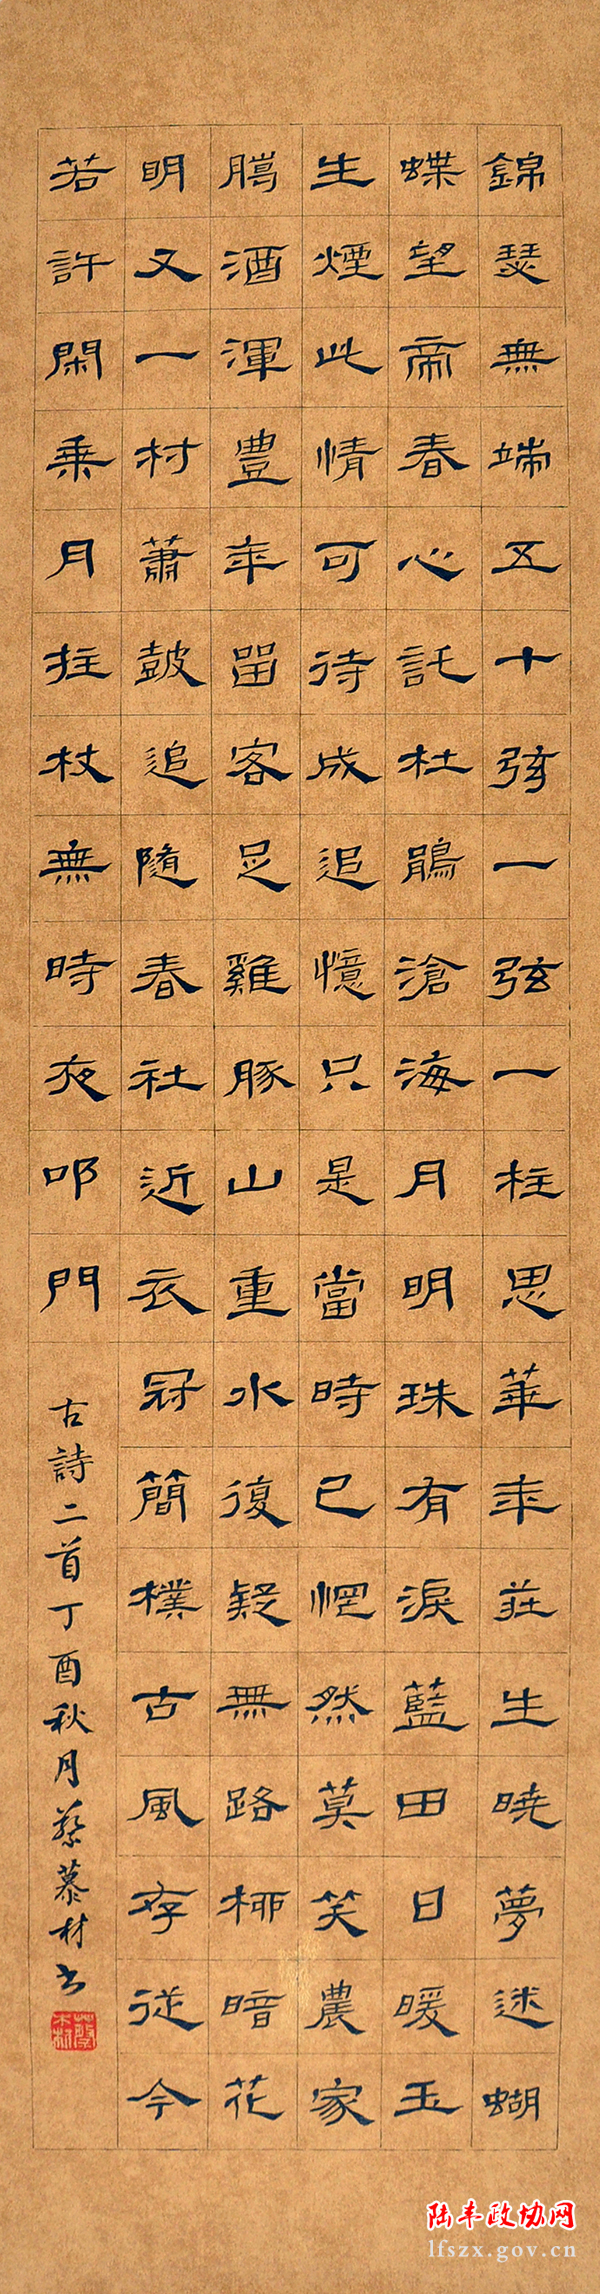 錦瑟無端五十弦一弦一柱思華年莊生曉夢迷蝴
蝶望帝春心託杜鵑滄海月明珠有淚藍田日暖玉
生煙此情可待成追憶只是當時已惘然莫笑農家
臈酒渾豐年留客足雞豚山重水復疑無路柳暗花
明又一村蕭鼓追隨春社近衣冠簡樸古風存從今
若許閑乘月拄杖無時夜叩門
古詩二首丁酉秋月蔡慕材书
陆丰政协网
lfszx.gov.cn